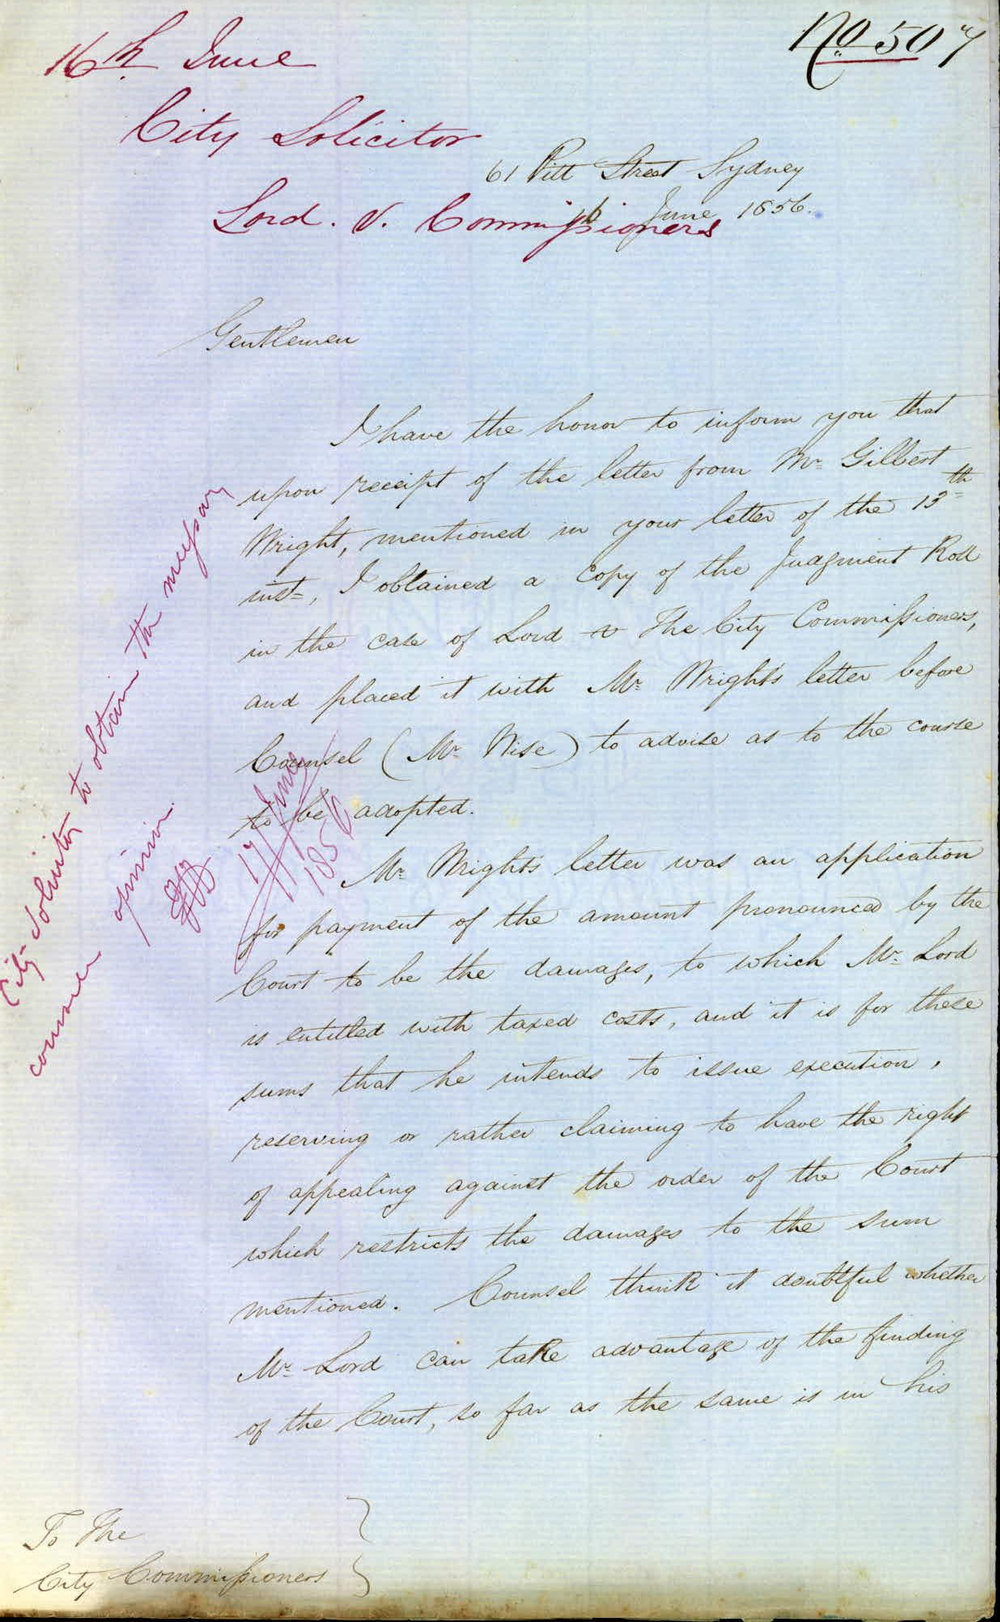 No 507
16th June
City Solicitor
61 Pitt Street Sydney
16 June 1856.
Lord. v. Commissioners
Gentlemen
I have the honor to inform you that
upon receipt of the letter from Mr Gilbert
Wright, mentioned in your letter of the 13th
inst, I obtained a copy of the Judgment Roll
in the case of Lord v The City Commissioners,
and placed it with Mr Wright's letter before
Counsel (Mr Wise) to advise as to the course
to be adopted.
Mr Wright's letter was an application
for payment of the amount pronounced by the
Court to be the damages, to which Mr Lord
is entitled with taxed costs, and it is for these
sums that he intends to issue execution,
reserving or rather claiming to have the right
of appealing against the order of the Court
which restricts the damages to the sum
mentioned. Counsel think it doubtful whether
Mr Lord can take advantage of the finding
of the Court, so far as the same is in his
To The
City Commissioners
City Solicitor to obtain the necessary
opinion
17 June
1856